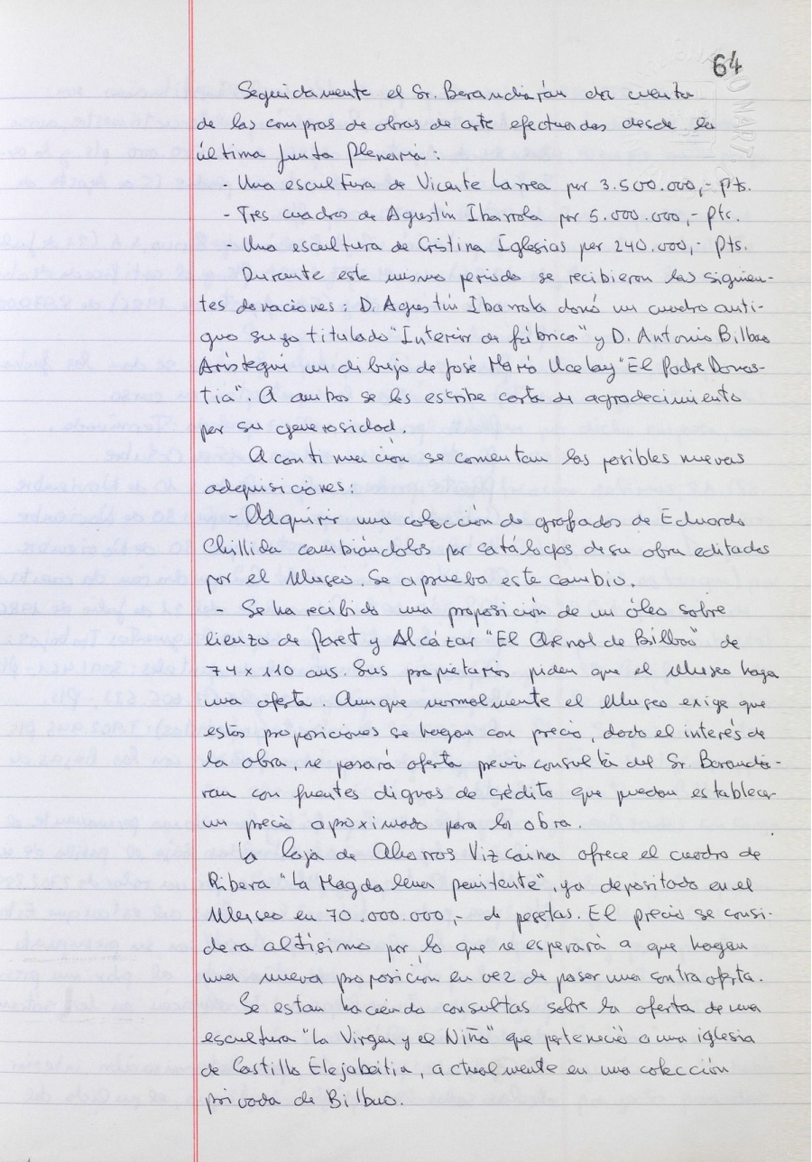 64
Seguidamente el Sr. Barandiarán da cuenta
de las compras de obras de arte efectuadas desde la
última Junta Plenaria:
- Una escultura de Vicente Larrea por 3.500.000,- Pts.
- Tres cuadros de Agustín Ibarrola por 5.000.000,- Pts.
- Una escultura de Cristina Iglesias por 240.000,- Pts.
Durante este mismo periodo se recibieron las siguien-
tes donaciones: D. Agustín Ibarrola donó un cuadro anti-
guo suyo titulado "Interior de fábrica" y D. Antonio Bilbao
Arístegui un dibujo de José María Ucelay "El Padre Donos-
tia". A ambos se les escribe carta de agradecimiento
por su generosidad.
A continuación se comentan las posibles nuevas
adquisiciones:
- Adquirir una colección de grabados de Eduardo
Chillida cambiándolos por catálogos de su obra editados
por el Museo. Se aprueba este cambio.
- Se ha recibido una proposición de un óleo sobre
lienzo de Paret y Alcázar "El Arenal de Bilbao" de
74 x 110 cms. Sus propietarios piden que el Museo haga
una oferta. Aunque normalmente el Museo exige que
estas proposiciones se hagan con precio, dado el interés de
la obra, se pasará oferta previa consulta del Sr. Barandia-
rán con fuentes dignas de crédito que puedan establecer
un precio aproximado para la obra.
La Caja de Ahorros Vizcaina ofrece el cuadro de
Ribera "La Magdalena penitente", ya depositado en el
Museo en 70.000.000,- de pesetas. El precio se consi-
dera altísimo por lo que se esperará a que hagan
una nueva proposición en vez de pasar una contraoferta.
Se estan haciendo consultas sobre la oferta de una
escultura "La Virgen y el Niño" que perteneció a una iglesia
de Castillo Elejabeitia, actualmente en una colección
privada de Bilbao.